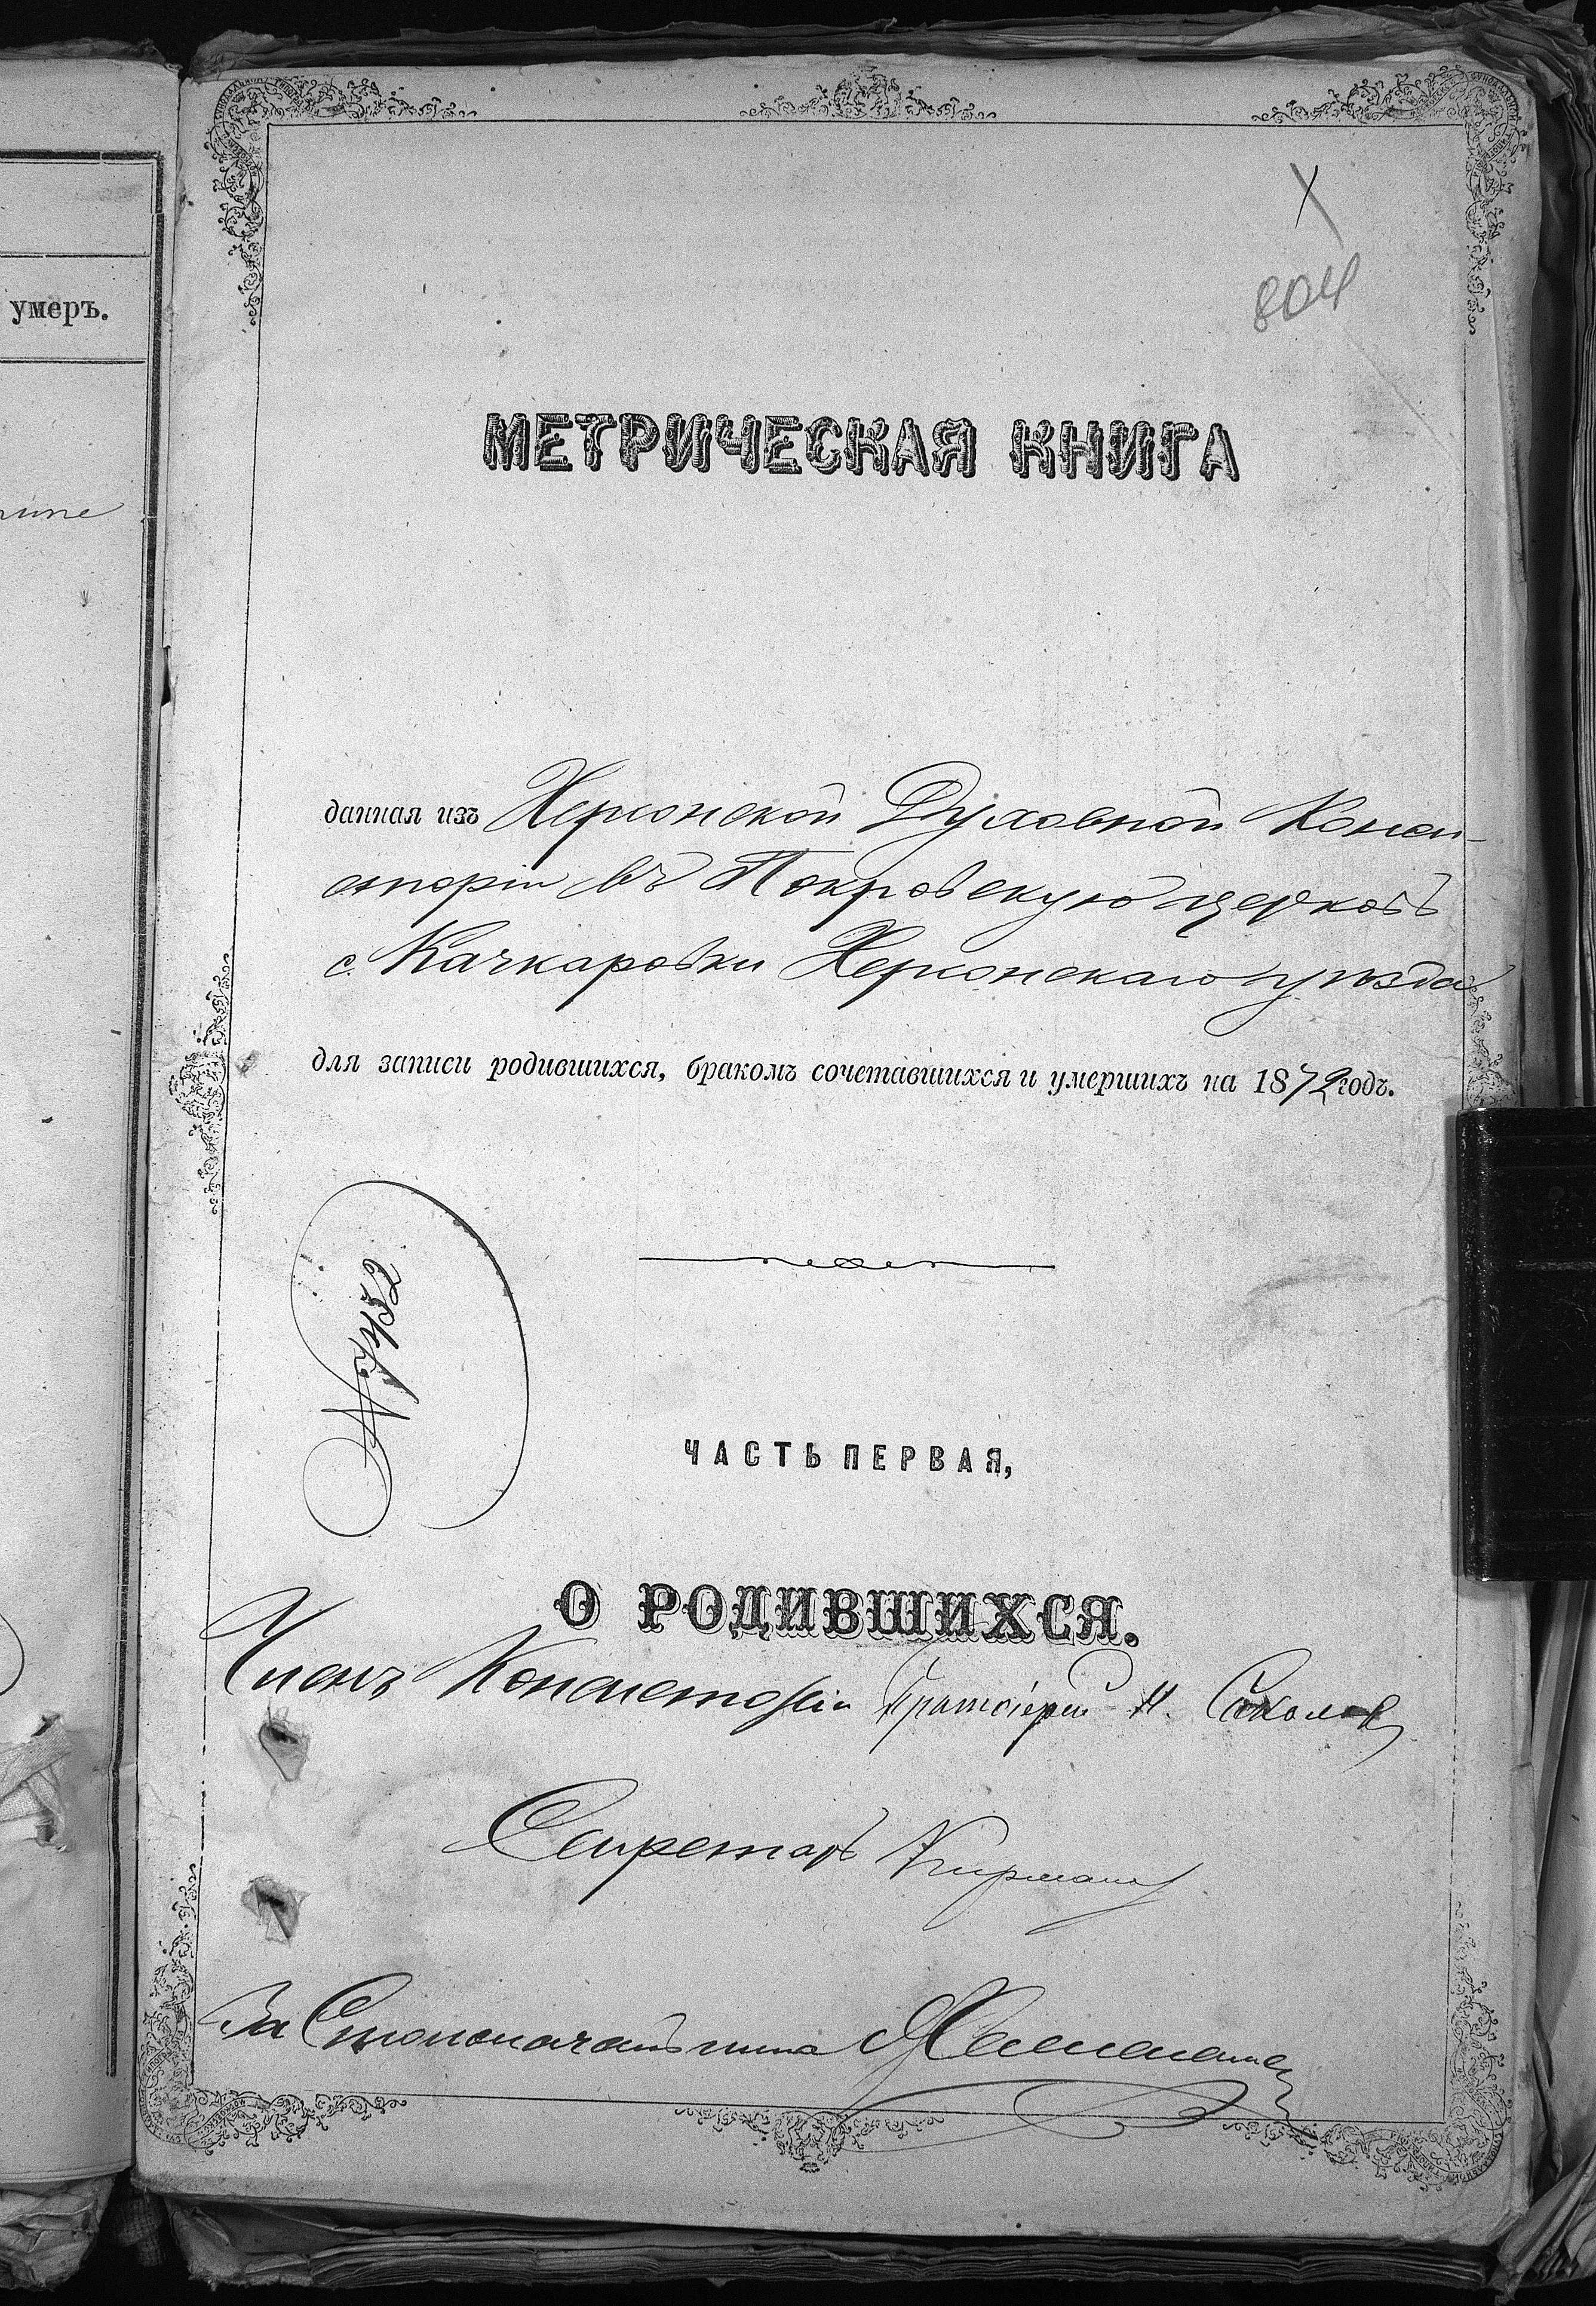 умеръ.
804
МЕТРИЧЕСКАЯ КНИГА
данная изъ Херсонской Духовной Конси-
сторіи въ Покровскую церковь
с. Качкаровки Херсонскаго уѣзда
для записи родившихся, бракомъ сочетавшихся и умершихъ на 1872 годъ.
ЧАСТЬ ПЕРВАЯ,
О РОДИВШИХСЯ.
Членъ Консисторіи Протоіерей Н. Соколов
Секретарь
За Столоначальника